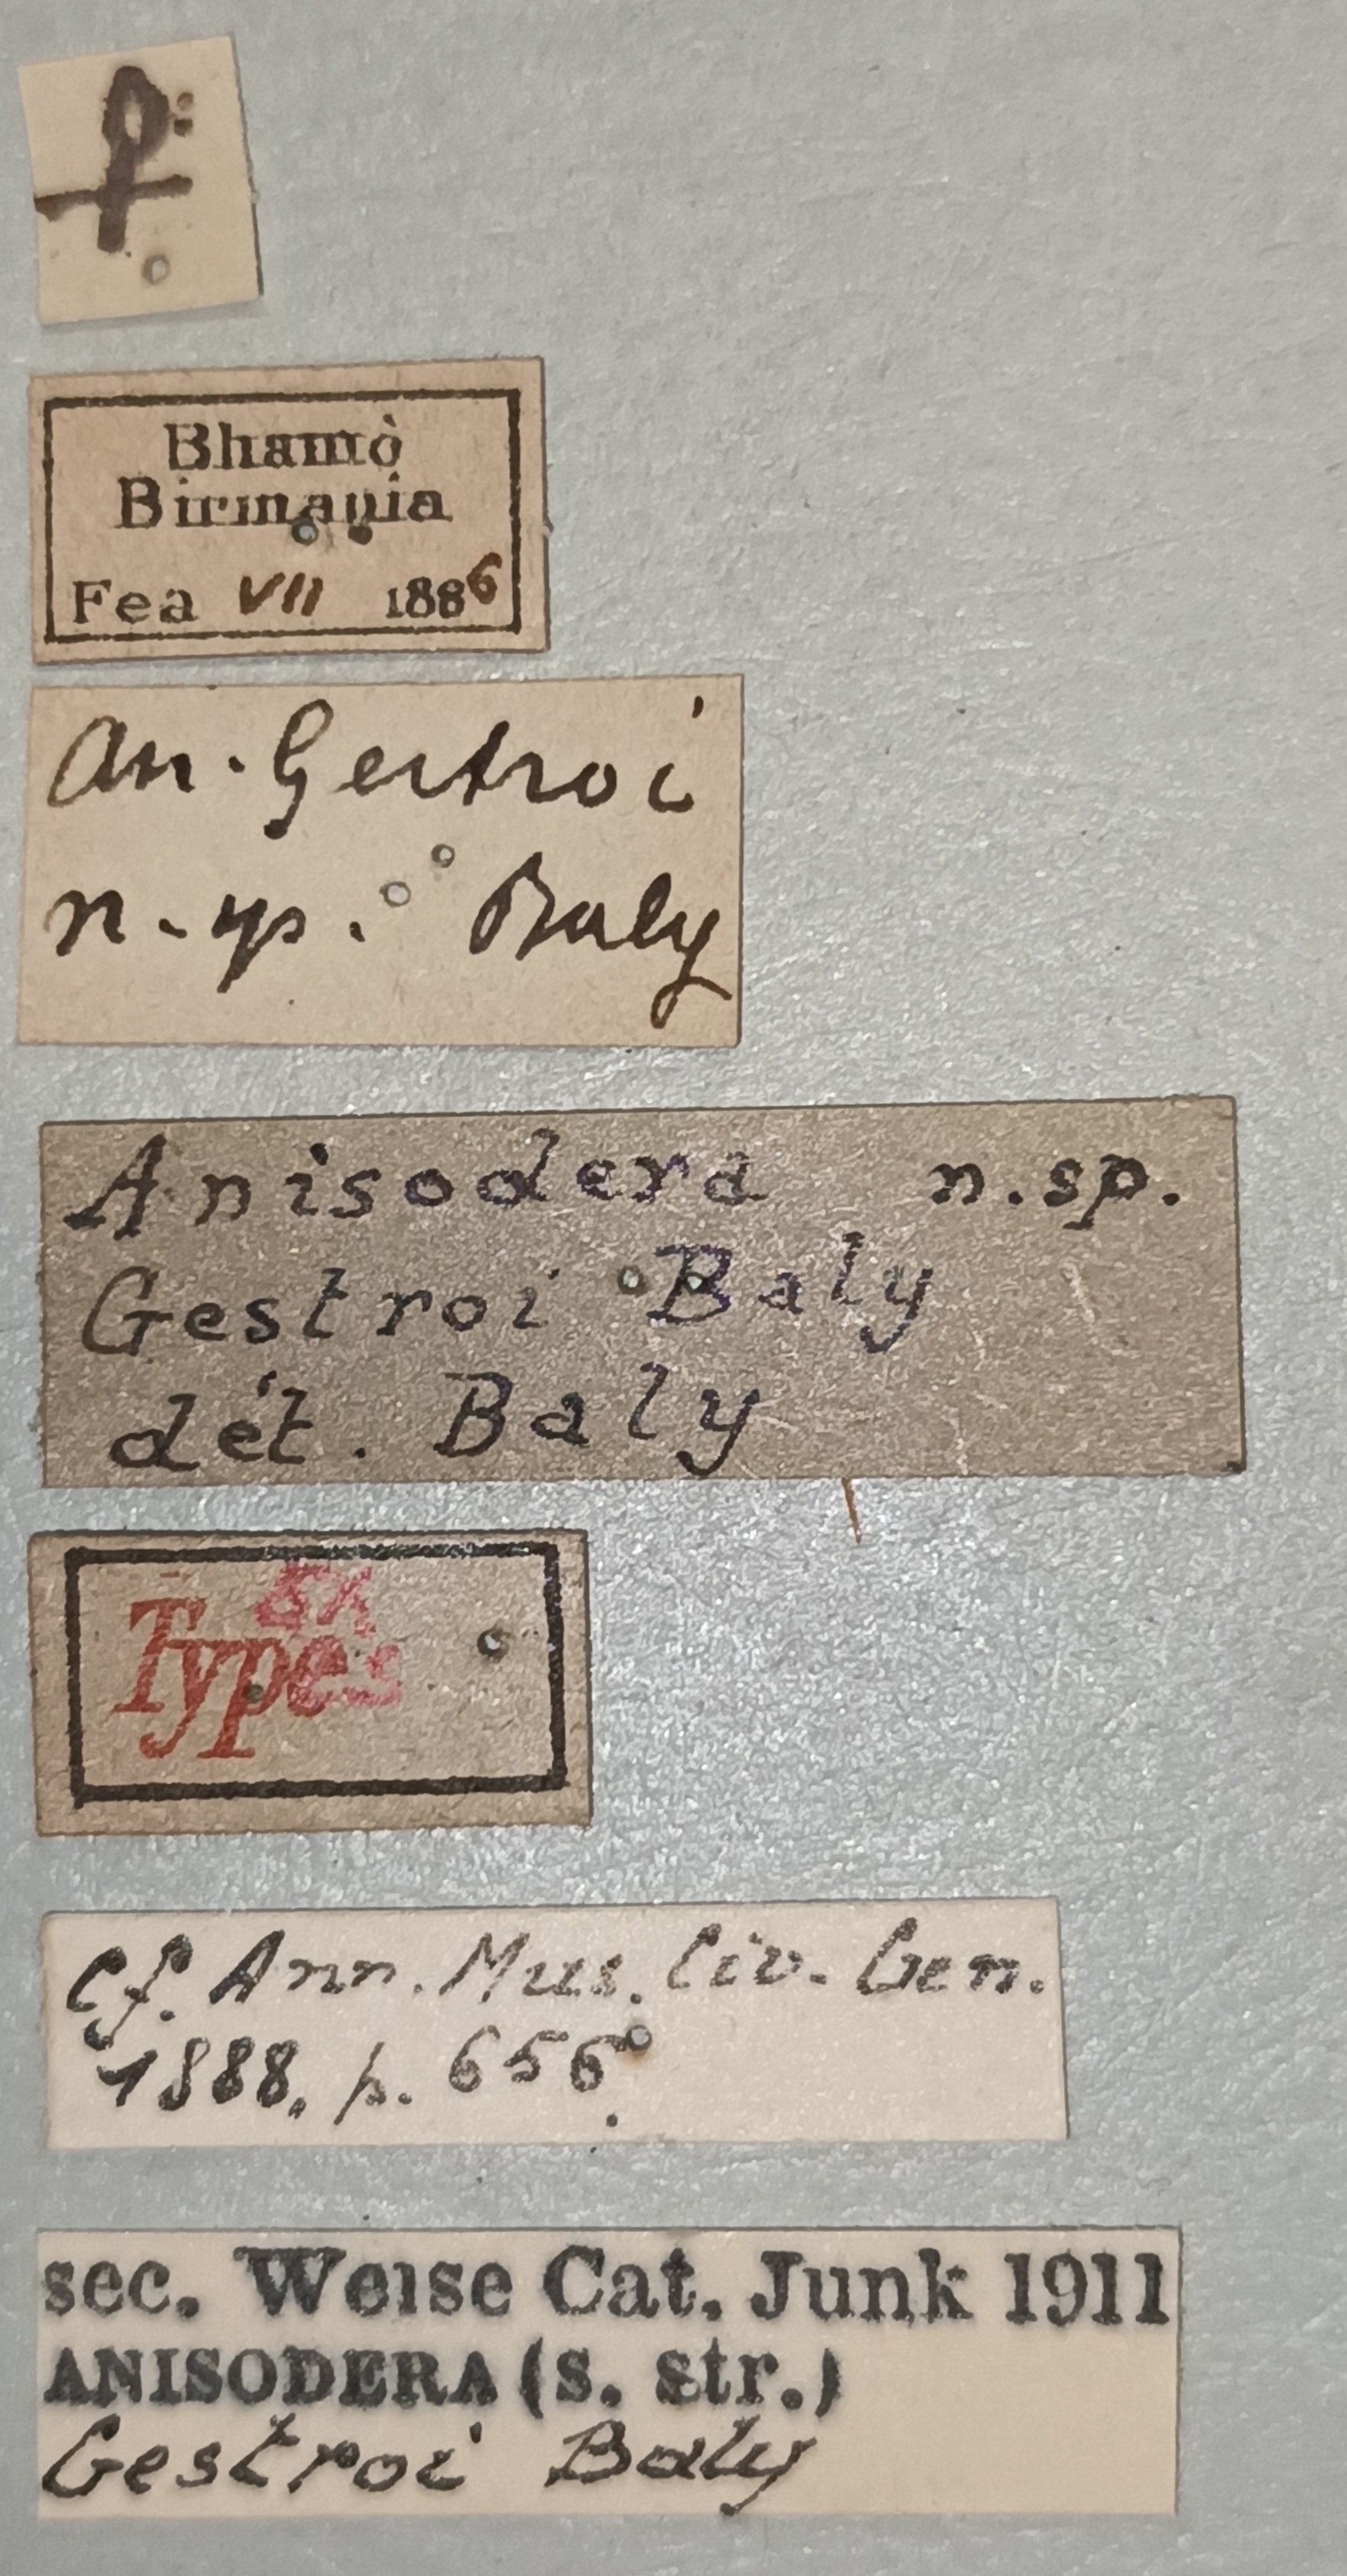 ♀
Bhamò
Birmania
Fea VII 1886
An. Gestroi
n. sp. Baly
Anisodera n.sp.
Gestroi Baly
dét. Baly
Ex
Types
cf. Ann. Mus. Civ. Gen.
1888. p. 656.
sec. Weise Cat. Junk 1911
ANISODERA (s. str.)
Gestroi Baly